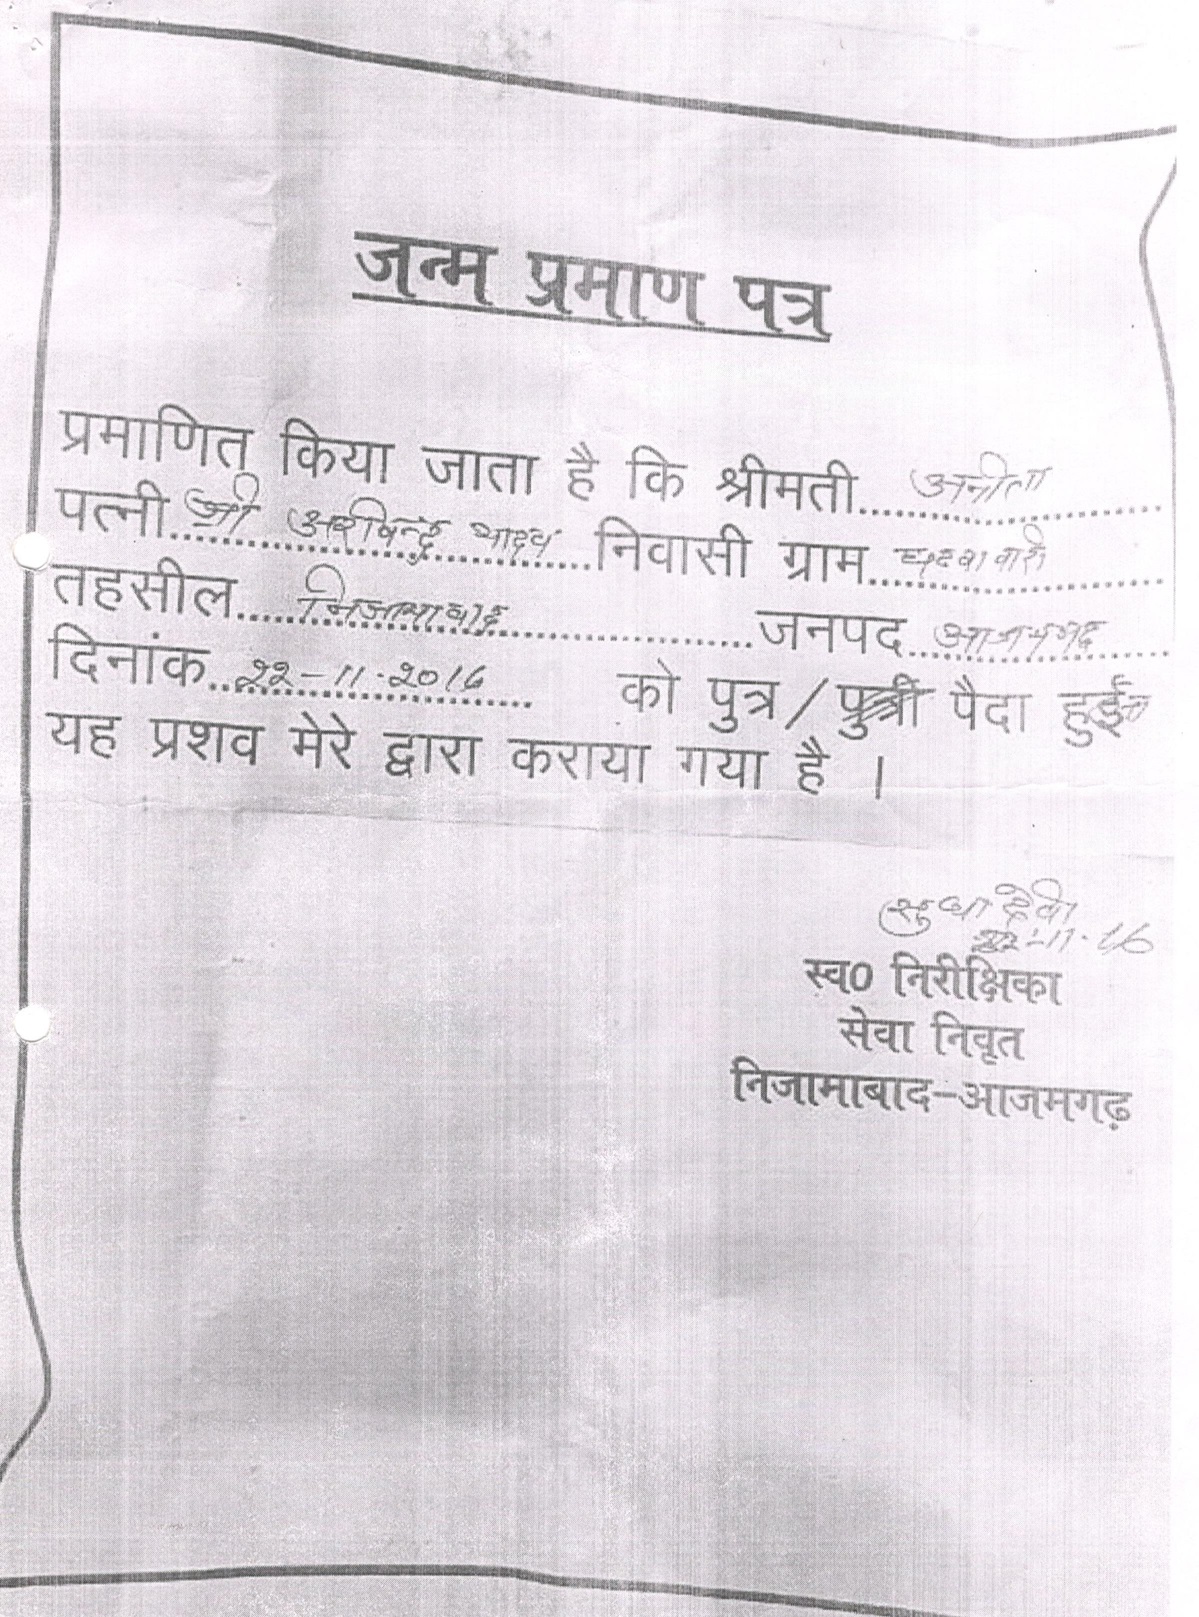 जन्म प्रमाण पत्र
प्रमाणित किया जाता है कि श्रीमती.. अनीता
पत्नी.. श्री अरविन्द यादव निवासी ग्राम..
तहसील.... निजामाबाद ...जनपद.. आजमगढ़
दिनांक.. 22-11-2016 को पुत्र / पुत्री पैदा हुई
यह प्रशव मेरे द्वारा कराया गया है ।
सुधा देवी
22-11-16
स्व0 निरीक्षिका
सेवा निवृत
निजामाबाद-आजमगढ़